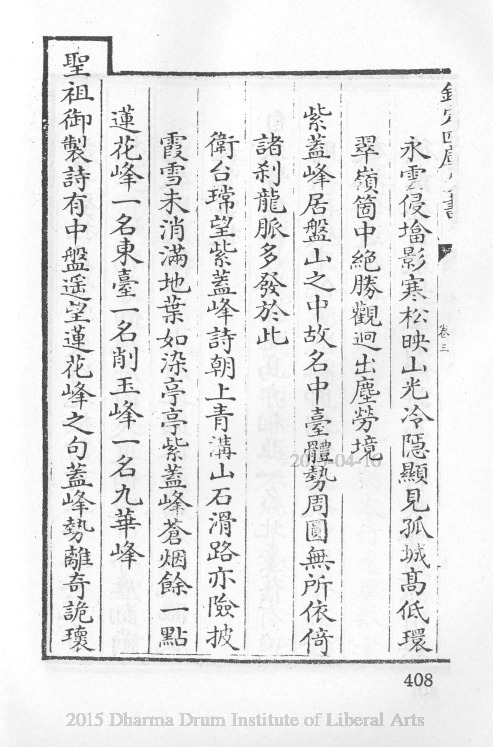 欽定四庫全書
卷三
永雲侵墖影寒松映山光冷隱顯見孤城髙低環
翠嶺箇中絶勝觀迥出塵勞境
紫蓋峰居盤山之中故名中臺體勢周圓無所依倚
諸刹龍脈多發於此
衛台瑺望紫蓋峰詩朝上青溝山石滑路亦險披
霞雪未消滿地葉如染亭亭紫蓋峰蒼烟餘一點
蓮花峰一名東臺一名削玉峰一名九華峰
聖祖御製詩有中盤遥望蓮花峰之句蓋峰勢離奇詭瓌
408
2015 Dharma Drum Institute of Liberal Arts